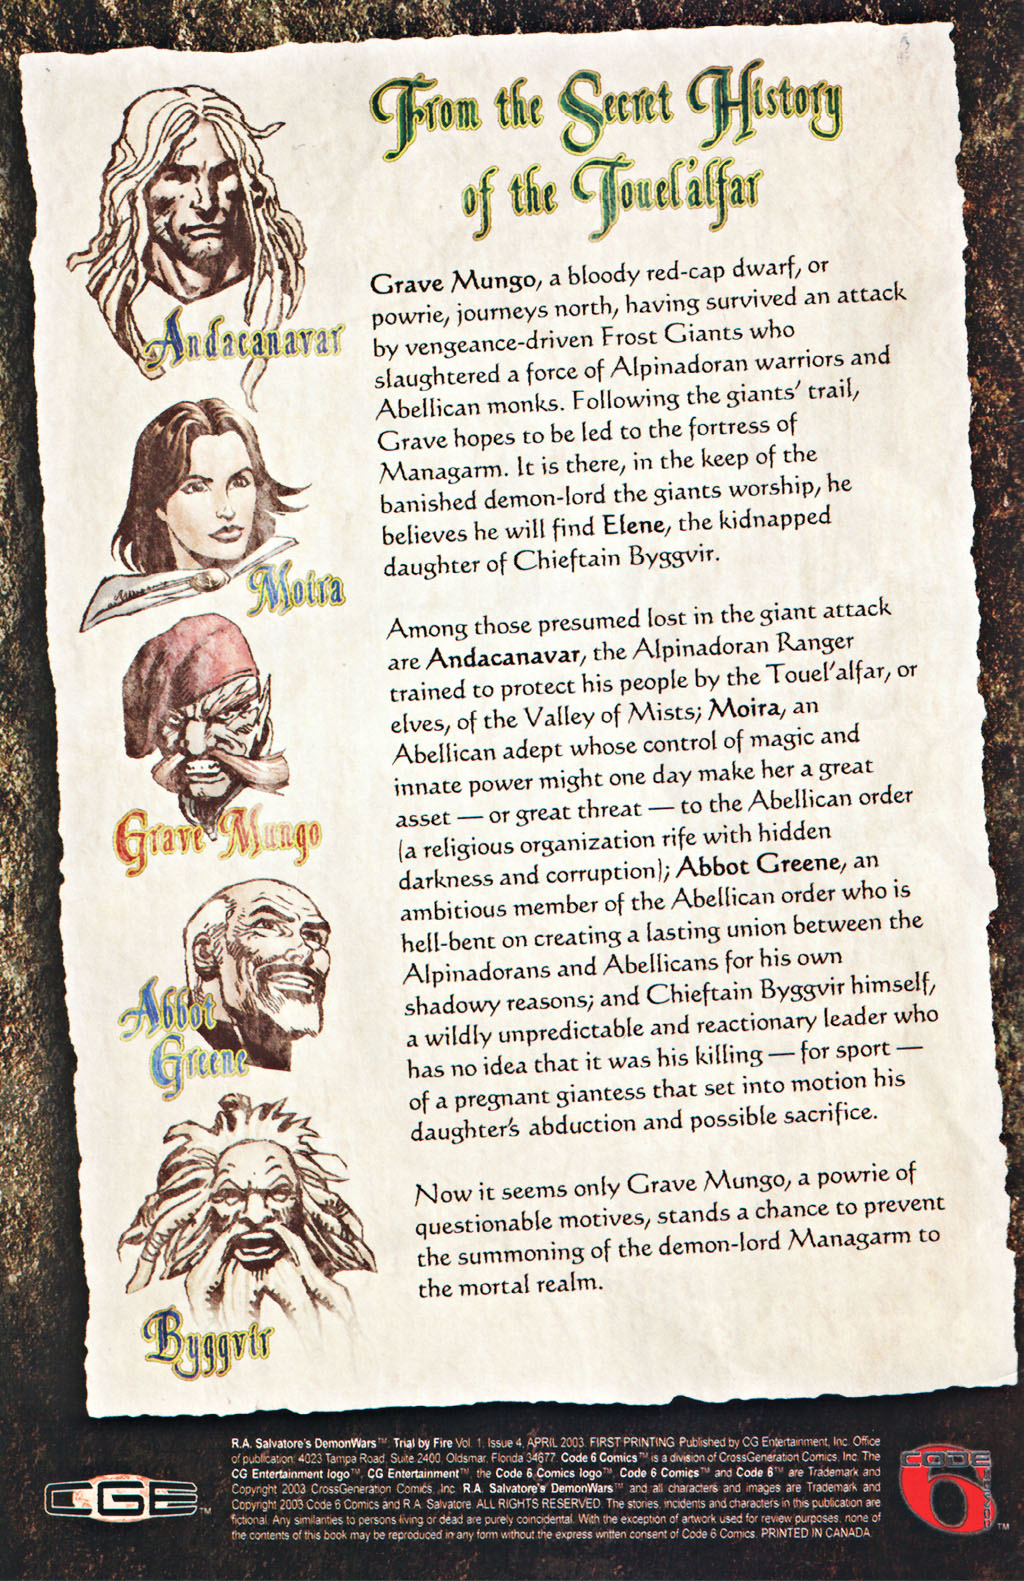 From the Secret History
of the Touel'alfar
Andacanavar
Moira
Grave Mungo
Abbot
Greene
Byggvir
Grave Mungo, a bloody red-cap dwarf, or
powrie, journeys north, having survived an attack
by vengeance-driven Frost Giants who
slaughtered a force of Alpinadoran warriors and
Abellican monks. Following the giants' trail,
Grave hopes to be led to the fortress of
Managarm. It is there, in the keep of the
banished demon-lord the giants worship, he
believes he will find Elene, the kidnapped
daughter of Chieftain Byggvir.
Among those presumed lost in the giant attack
are Andacanavar, the Alpinadoran Ranger
trained to protect his people by the Touel'alfar, or
elves, of the Valley of Mists; Moira, an
Abellican adept whose control of magic and
innate power might one day make her a great
asset — or great threat — to the Abellican order
(a religious organization rife with hidden
darkness and corruption); Abbot Greene, an
ambitious member of the Abellican order who is
hell-bent on creating a lasting union between the
Alpinadorans and Abellicans for his own
shadowy reasons; and Chieftain Byggvir himself,
a wildly unpredictable and reactionary leader who
has no idea that it was his killing — for sport —
of a pregnant giantess that set into motion his
daughter's abduction and possible sacrifice.
Now it seems only Grave Mungo, a powrie of
questionable motives, stands a chance to prevent
the summoning of the demon-lord Managarm to
the mortal realm.
CGE™
R.A. Salvatore's DemonWars™: Trial by Fire Vol. 1, Issue 4, APRIL 2003. FIRST PRINTING. Published by CG Entertainment, Inc. Office
of publication: 4023 Tampa Road, Suite 2400, Oldsmar, Florida 34677. Code 6 Comics™ is a division of CrossGeneration Comics, Inc. The
CG Entertainment logo™, CG Entertainment™, the Code 6 Comics logo™, Code 6 Comics™ and Code 6™ are Trademark and
Copyright 2003 CrossGeneration Comics, Inc. R.A. Salvatore's DemonWars™ and all characters and images are Trademark and
Copyright 2003 Code 6 Comics and R.A. Salvatore. ALL RIGHTS RESERVED. The stories, incidents and characters in this publication are
fictional. Any similarities to persons living or dead are purely coincidental. With the exception of artwork used for review purposes, none of
the contents of this book may be reproduced in any form without the express written consent of Code 6 Comics. PRINTED IN CANADA.
CODE
6
COMICS
™